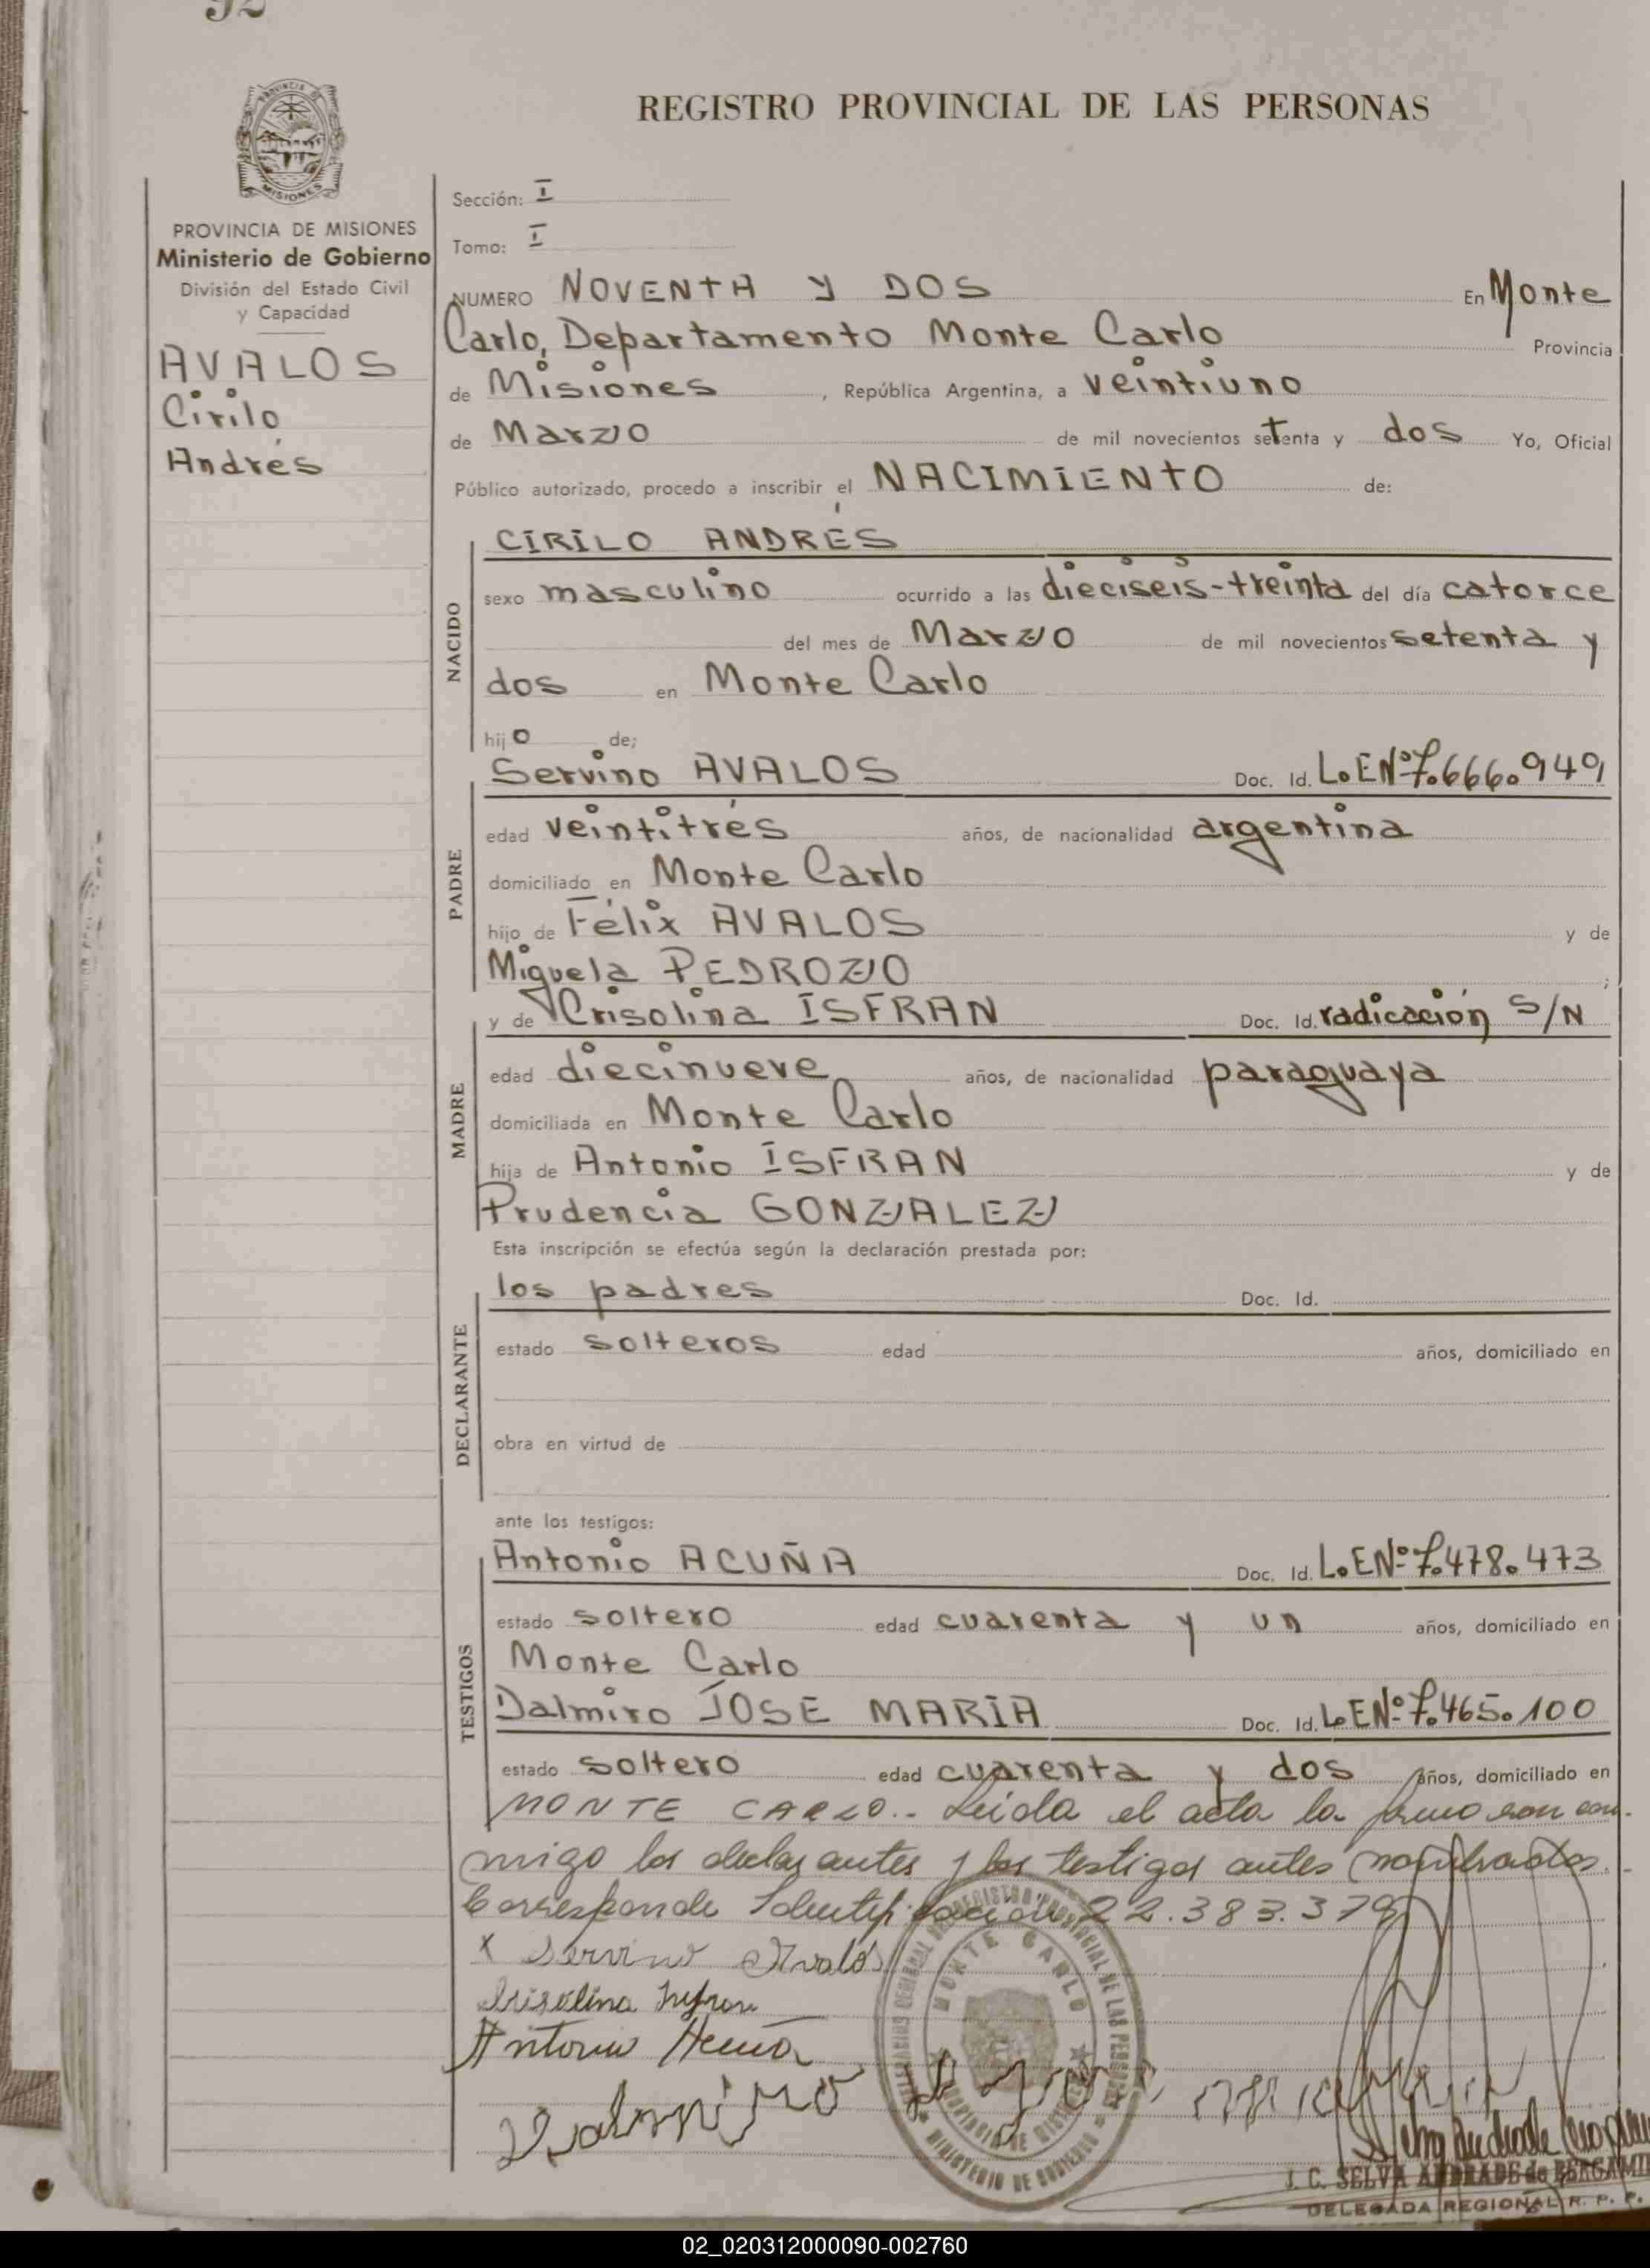 92
REGISTRO PROVINCIAL DE LAS PERSONAS
PROVINCIA DE
MISIONES
PROVINCIA DE MISIONES
Ministerio de Gobierno
División del Estado Civil
y Capacidad
AVALOS
Cirilo
Andrés
Sección: I
Tomo: I
NUMERO NOVENTA Y DOS En Monte
Carlo, Departamento Monte Carlo Provincia
de Misiones , República Argentina, a veintiuno
de Marzo de mil novecientos setenta y dos Yo, Oficial
Público autorizado, procedo a inscribir el NACIMIENTO de:
NACIDO
CIRILO ANDRÉS
sexo masculino ocurrido a las dieciseis-treinta del día catorce
del mes de Marzo de mil novecientos setenta y
dos en Monte Carlo
hijo de;
PADRE
Servino AVALOS Doc. Id. L.E.Nº 7.666.949
edad veintitrés años, de nacionalidad argentina
domiciliado en Monte Carlo
hijo de Félix AVALOS y de
Miguela PEDROZO ;
MADRE
y de Crisolina ISFRAN Doc. Id. radicación S/N
edad diecinueve años, de nacionalidad paraguaya
domiciliada en Monte Carlo
hija de Antonio ISFRAN y de
Prudencia GONZALEZ
Esta inscripción se efectúa según la declaración prestada por:
DECLARANTE
los padres Doc. Id.
estado solteros edad años, domiciliado en
obra en virtud de
ante los testigos:
TESTIGOS
Antonio ACUÑA Doc. Id. L.E.Nº 7.478.473
estado soltero edad cuarenta y un años, domiciliado en
Monte Carlo
Dalmiro JOSE MARIA Doc. Id. L.E.Nº 7.465.100
estado soltero edad cuarenta y dos años, domiciliado en
MONTE CARLO.- Leida el acta la firmaron con-
migo los declarantes y los testigos antes nombrados.-
Corresponde Identificación 22.383.379
x Servino Avalos
Crisolina Isfran
Antonio Acuña
Dalmiro
REGISTRO PROVINCIAL DE LAS PERSONAS
MONTE CARLO
PROVINCIA DE MISIONES
MINISTERIO DE GOBIERNO
J. C. SELVA ANDRADE de
DELEGADA REGIONAL R. P. P.
02_020312000090-002760